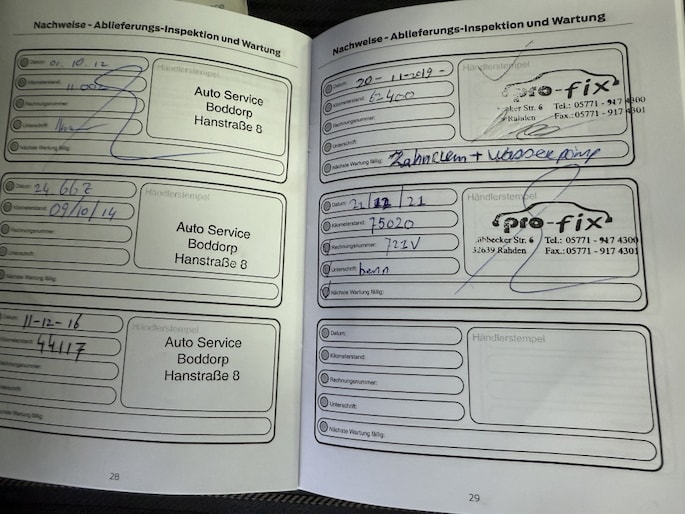 Nachweise - Ablieferungs-Inspektion und Wartung
Datum: 01. 10. 12
Kilometerstand:
Rechnungsnummer:
Unterschrift:
Nächste Wartung fällig:
Händlerstempel
Auto Service
Boddorp
Hanstraße 8
Datum: 24 667
Kilometerstand: 09/10/14
Rechnungsnummer:
Unterschrift:
Nächste Wartung fällig:
Händlerstempel
Auto Service
Boddorp
Hanstraße 8
11-12-16
Kilometerstand: 44117
Rechnungsnummer:
Unterschrift:
Nächste Wartung fällig:
Händlerstempel
Auto Service
Boddorp
Hanstraße 8
28
Nachweise - Ablieferungs-Inspektion und Wartung
Datum: 20-11-2019-
Kilometerstand: 62400
Rechnungsnummer:
Unterschrift:
Nächste Wartung fällig: + wasserpomp
Händlerstempel
pro-fix
Str. 6 Tel.: 05771 - 917 4300
Rahden Fax.: 05771 - 917 4301
Datum: 21/12/21
Kilometerstand: 75020
Rechnungsnummer: 721V
Unterschrift:
Nächste Wartung fällig:
Händlerstempel
pro-fix
Lübbecker Str. 6 Tel.: 05771 - 917 4300
32639 Rahden Fax.: 05771 - 917 4301
Datum:
Kilometerstand:
Rechnungsnummer:
Unterschrift:
Nächste Wartung fällig:
Händlerstempel
29